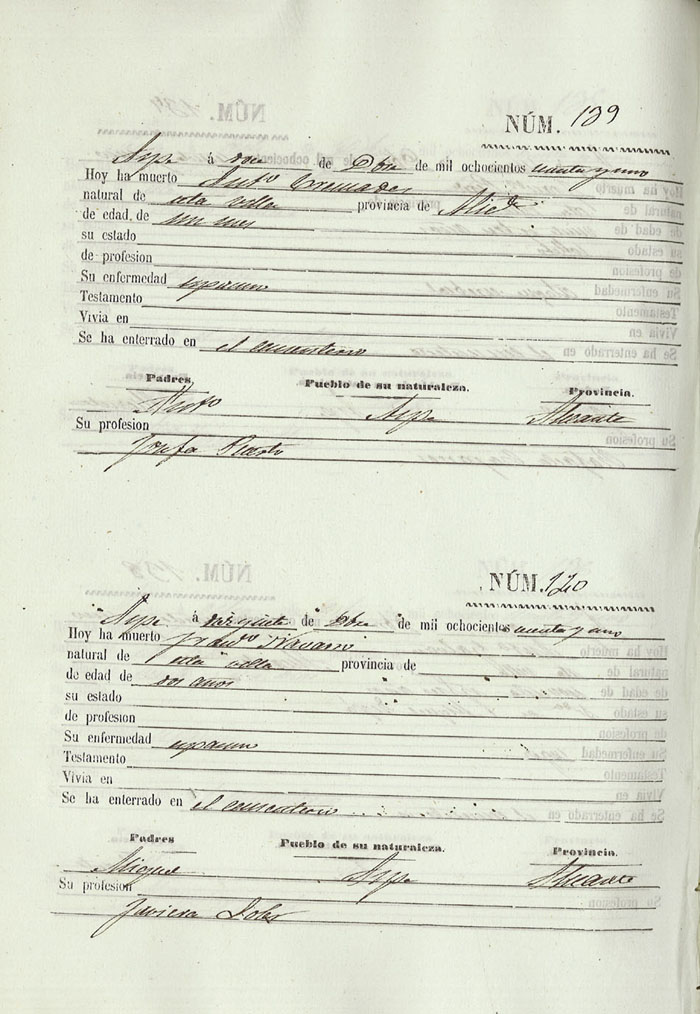 NÚM. 139
Aspe á doce de Dbre de mil ochocientos cuenta y uno
Hoy ha muerto Antº Cremades
natural de esta villa provincia de Alicte
de edad, de un mes
su estado
de profesion
Su enfermedad espasmo
Testamento
Vivia en
Se ha enterrado en el cementerio
Padres, Pueblo de su naturaleza. Provincia.
Antº Aspe Alicante
Su profesion
Josefa
NÚM. 120
Aspe á de Dbre de mil ochocientos cuenta y uno
Hoy ha muerto Navarro
natural de esta villa provincia de
de edad de dos años
su estado
de profesion
Su enfermedad espasmo
Testamento
Vivia en
Se ha enterrado en el cementerio
Padres Pueblo de su naturaleza. Provincia.
Miguel Aspe Alicante
Su profesion
Javiera